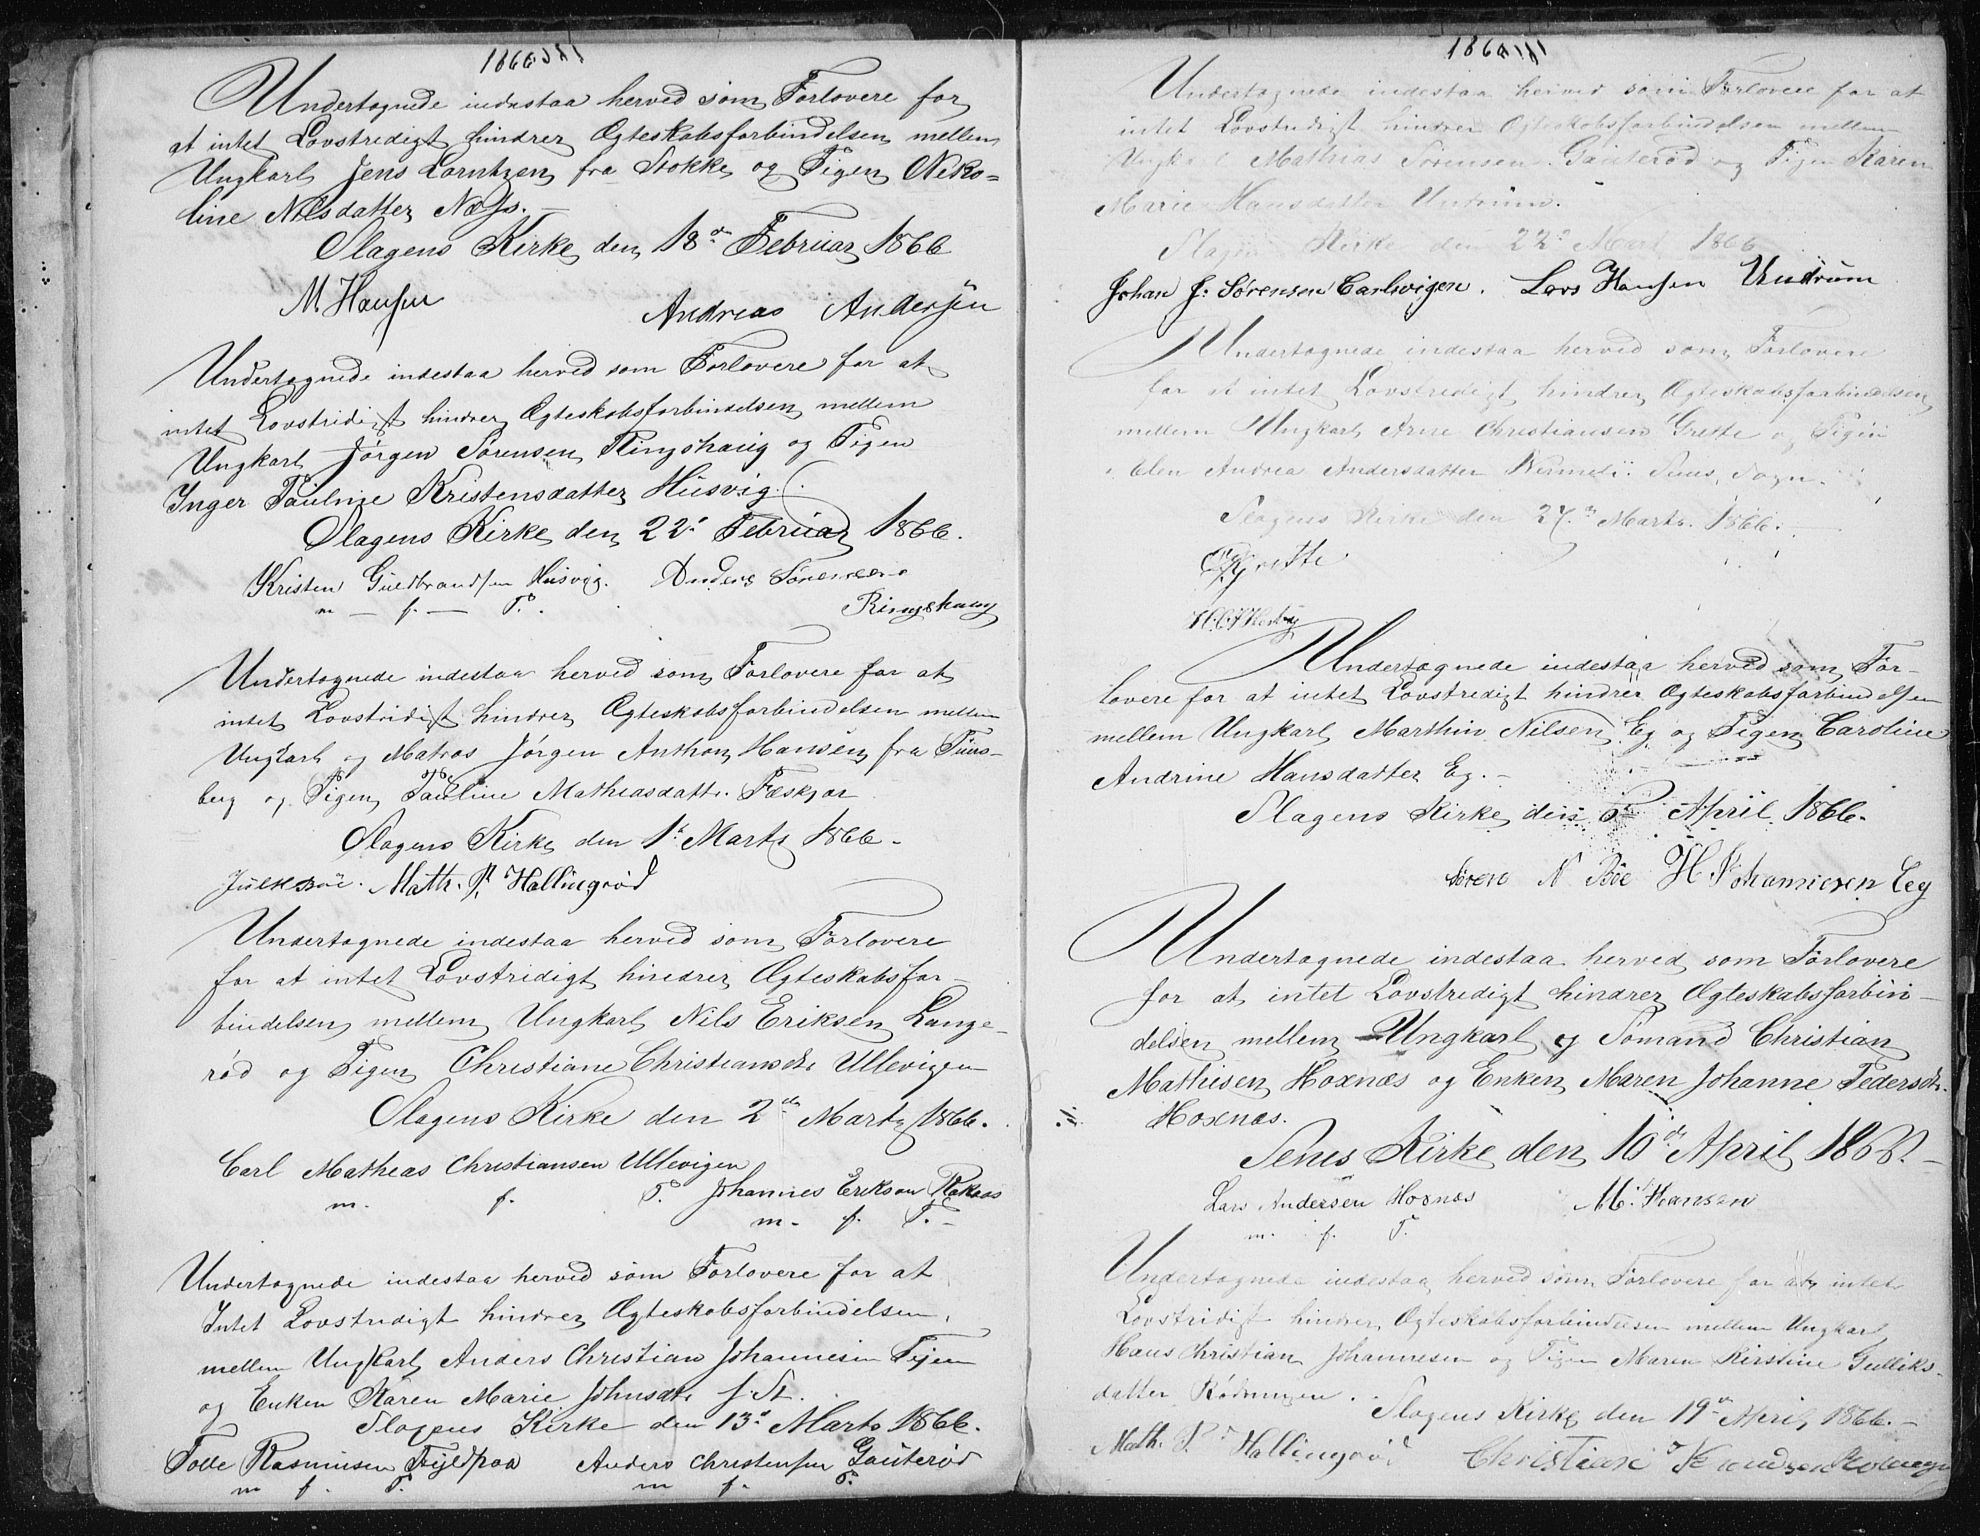 1866
Undertegnede indestaa herved som Forlovere for
at intet Lovstridigt hindrer Ægteskabsforbindelsen mellem
Ungkarl Jens Lorntzen fra Stokke og Pigen Niko=
line Nilsdatter Næss.
Slagens Kirke den 18de Februar 1866
M. Hansen Andreas Andersen
Undertegnede indestaa herved som Forlovere for at
intet Lovstridigt hindrer Ægteskabsforbindelsen mellem
Ungkarl Jörgen Sörensen Ringshaug og Pigen
Inger Pauline Kristensdatter Husvig.
Slagens Kirke den 22d Februar 1866.
Kristen Guldbrandsen Husvig. Anders Sörensen
m — f. — P. Ringshaug
Undertegnede indestaa herved som Forlovere for at
intet Lovstridigt hindrer Ægteskabsforbindelsen mellem
Ungkarl og Matros Jörgen Anthon Hansen fra Tøns-
berg og Pigen Pauline Mathiasdattr.
Slagens Kirke den 1ste Marts 1866.
Math. P. Hallingrød
Undertegnede indestaa herved som Forlovere
for at intet Lovstridigt hindrer Ægteskabsfor-
bindelsen mellem Ungkarl Nils Eriksen Lange-
rød og Pigen Christiane Christiansdr. Ullevigen
Slagens Kirke den 2den Marts 1866.
Carl Mathias Christiansen Ullevigen
m. f. P. Johannes Erikson
m. f. P.
Undertegnede indestaa herved som Forlovere for at
Intet Lovstridigt hindrer Ægteskabsforbindelsen
mellem Ungkarl Anders Christian Johannesen
og Enken Karen Marie Johnsdr.
Slagens Kirke den 13de Marts 1866.
Rasmusen Anders Christensen Gauterød
m f. P. m f. P.
1866
Undertegnede indestaa herved som Forlovere for at
intet Lovstridigt hindrer Ægteskabsforbindelsen mellem
Ungkarl Mathias Sörensen Gauterød og Pigen Karen
Marie Hansdatter Undrum.
Slagens Kirke den 22d Marts 1866
Johan J. Sørensen Carlsvigen. Lars Hansen Undrum
Undertegnede indestaa herved som Forlovere
for at intet Lovstridigt hindrer Ægteskabsforbindelsen
mellem Ungkarl Arne Christiansen Grette og Pigen
Andrea Andersdatter i Sems Sogn.
Slagens Kirke den 27de Marts 1866.
Grette
Undertegnede indestaa herved som For-
lovere for at intet Lovstridigt hindrer Ægteskabsforbindelsen
mellem Ungkarl Marthin Nilsen Eg og Pigen Caroline
Andrine Hansdatter Eg.
Slagens Kirke den 6te April 1866.
Sören N Böe H Johannesen Eeg
Undertegnede indestaa herved som Forlovere
for at intet Lovstridigt hindrer Ægteskabsforbin-
delsen mellem Ungkarl og Sömand Christian
Mathisen Hoxnæs og Enken Maren Johanne Pedersdr.
Hoxnæs.
Sems Kirke den 10de April 1866.
Lars Andersen Hoxnæs M. Hansen
m. f. P.
Undertegnede indestaa herved som Forlovere for at intet
Lovstridigt hindrer Ægteskabsforbindelsen mellem Ungkarl
Hans Christian Johannesen og Pigen Maren Kirstine Gulliks-
datter Rödningen.
Slagens Kirke den 19de April 1866.
Math. P. Hallingrød Christian Knudsen